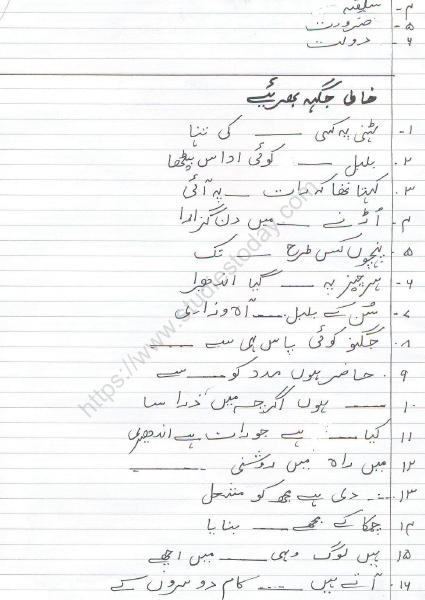 ۴- سلیقہ
۵- ضرورت
۶- دولت
خالی جگہہ بھریئے
۱- ٹہنی پہ کسی ____ کی تنہا
۲. بلبل ____ کوئی اداس بیٹھا
۳. کہتا تھا کہ رات ____ پہ آئی
۴. اُڑنے ____ میں دن گزارا
۵. پہنچوں کس طرح ____ تک
۶- ہر چیز پہ ____ گیا اندھیرا
۷- سُن کے بلبل ____ آہ وزاری
۸. جگنو کوئی پاس ہی سے ____
۹. حاضر ہوں مدد کو ____ سے
۱۰. ____ ہوں اگرچہ میں ذرا سا
۱۱ کیا ____ ہے جو رات ہے اندھیری
۱۲ میں راہ میں روشنی ____
۱۳- ____ دی ہے مجھ کو مشعل
۱۴ چمکا کے مجھے ____ بنایا
۱۵ ہیں لوگ وہی ____ میں اچھے
۱۶. آتے ہیں ____ کام دوسروں کے
https://www.studiestoday.com